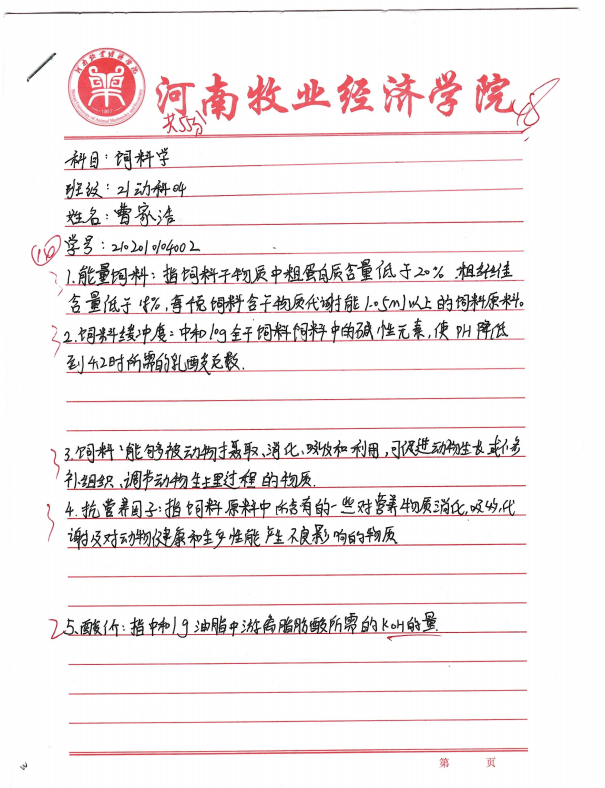 河南牧业经济学院
共55分
科目:饲料学
班级:21动科04
姓名:曹家浩
学号:2102010104002
1.能量饲料:指饲料干物质中粗蛋白质含量低于20%,粗纤维
含量低于18%,每千克饲料含干物质代谢能1.05mJ以上的饲料原料。
2.饲料缓冲度:中和10g全干饲料饲料中的碱性元素,使PH降低
到4.2时所需的乳酸克数.
3.饲料:能够被动物摄取、消化、吸收和利用,可促进动物生长或修
补组织、调节动物生理过程的物质.
4.抗营养因子:指饲料原料中所含有的一些对营养物质消化,吸收,代
谢及对动物健康和生产性能产生不良影响的物质
2
5.酸价:指中和1g油脂中游离脂肪酸所需的KOH的量
第 页